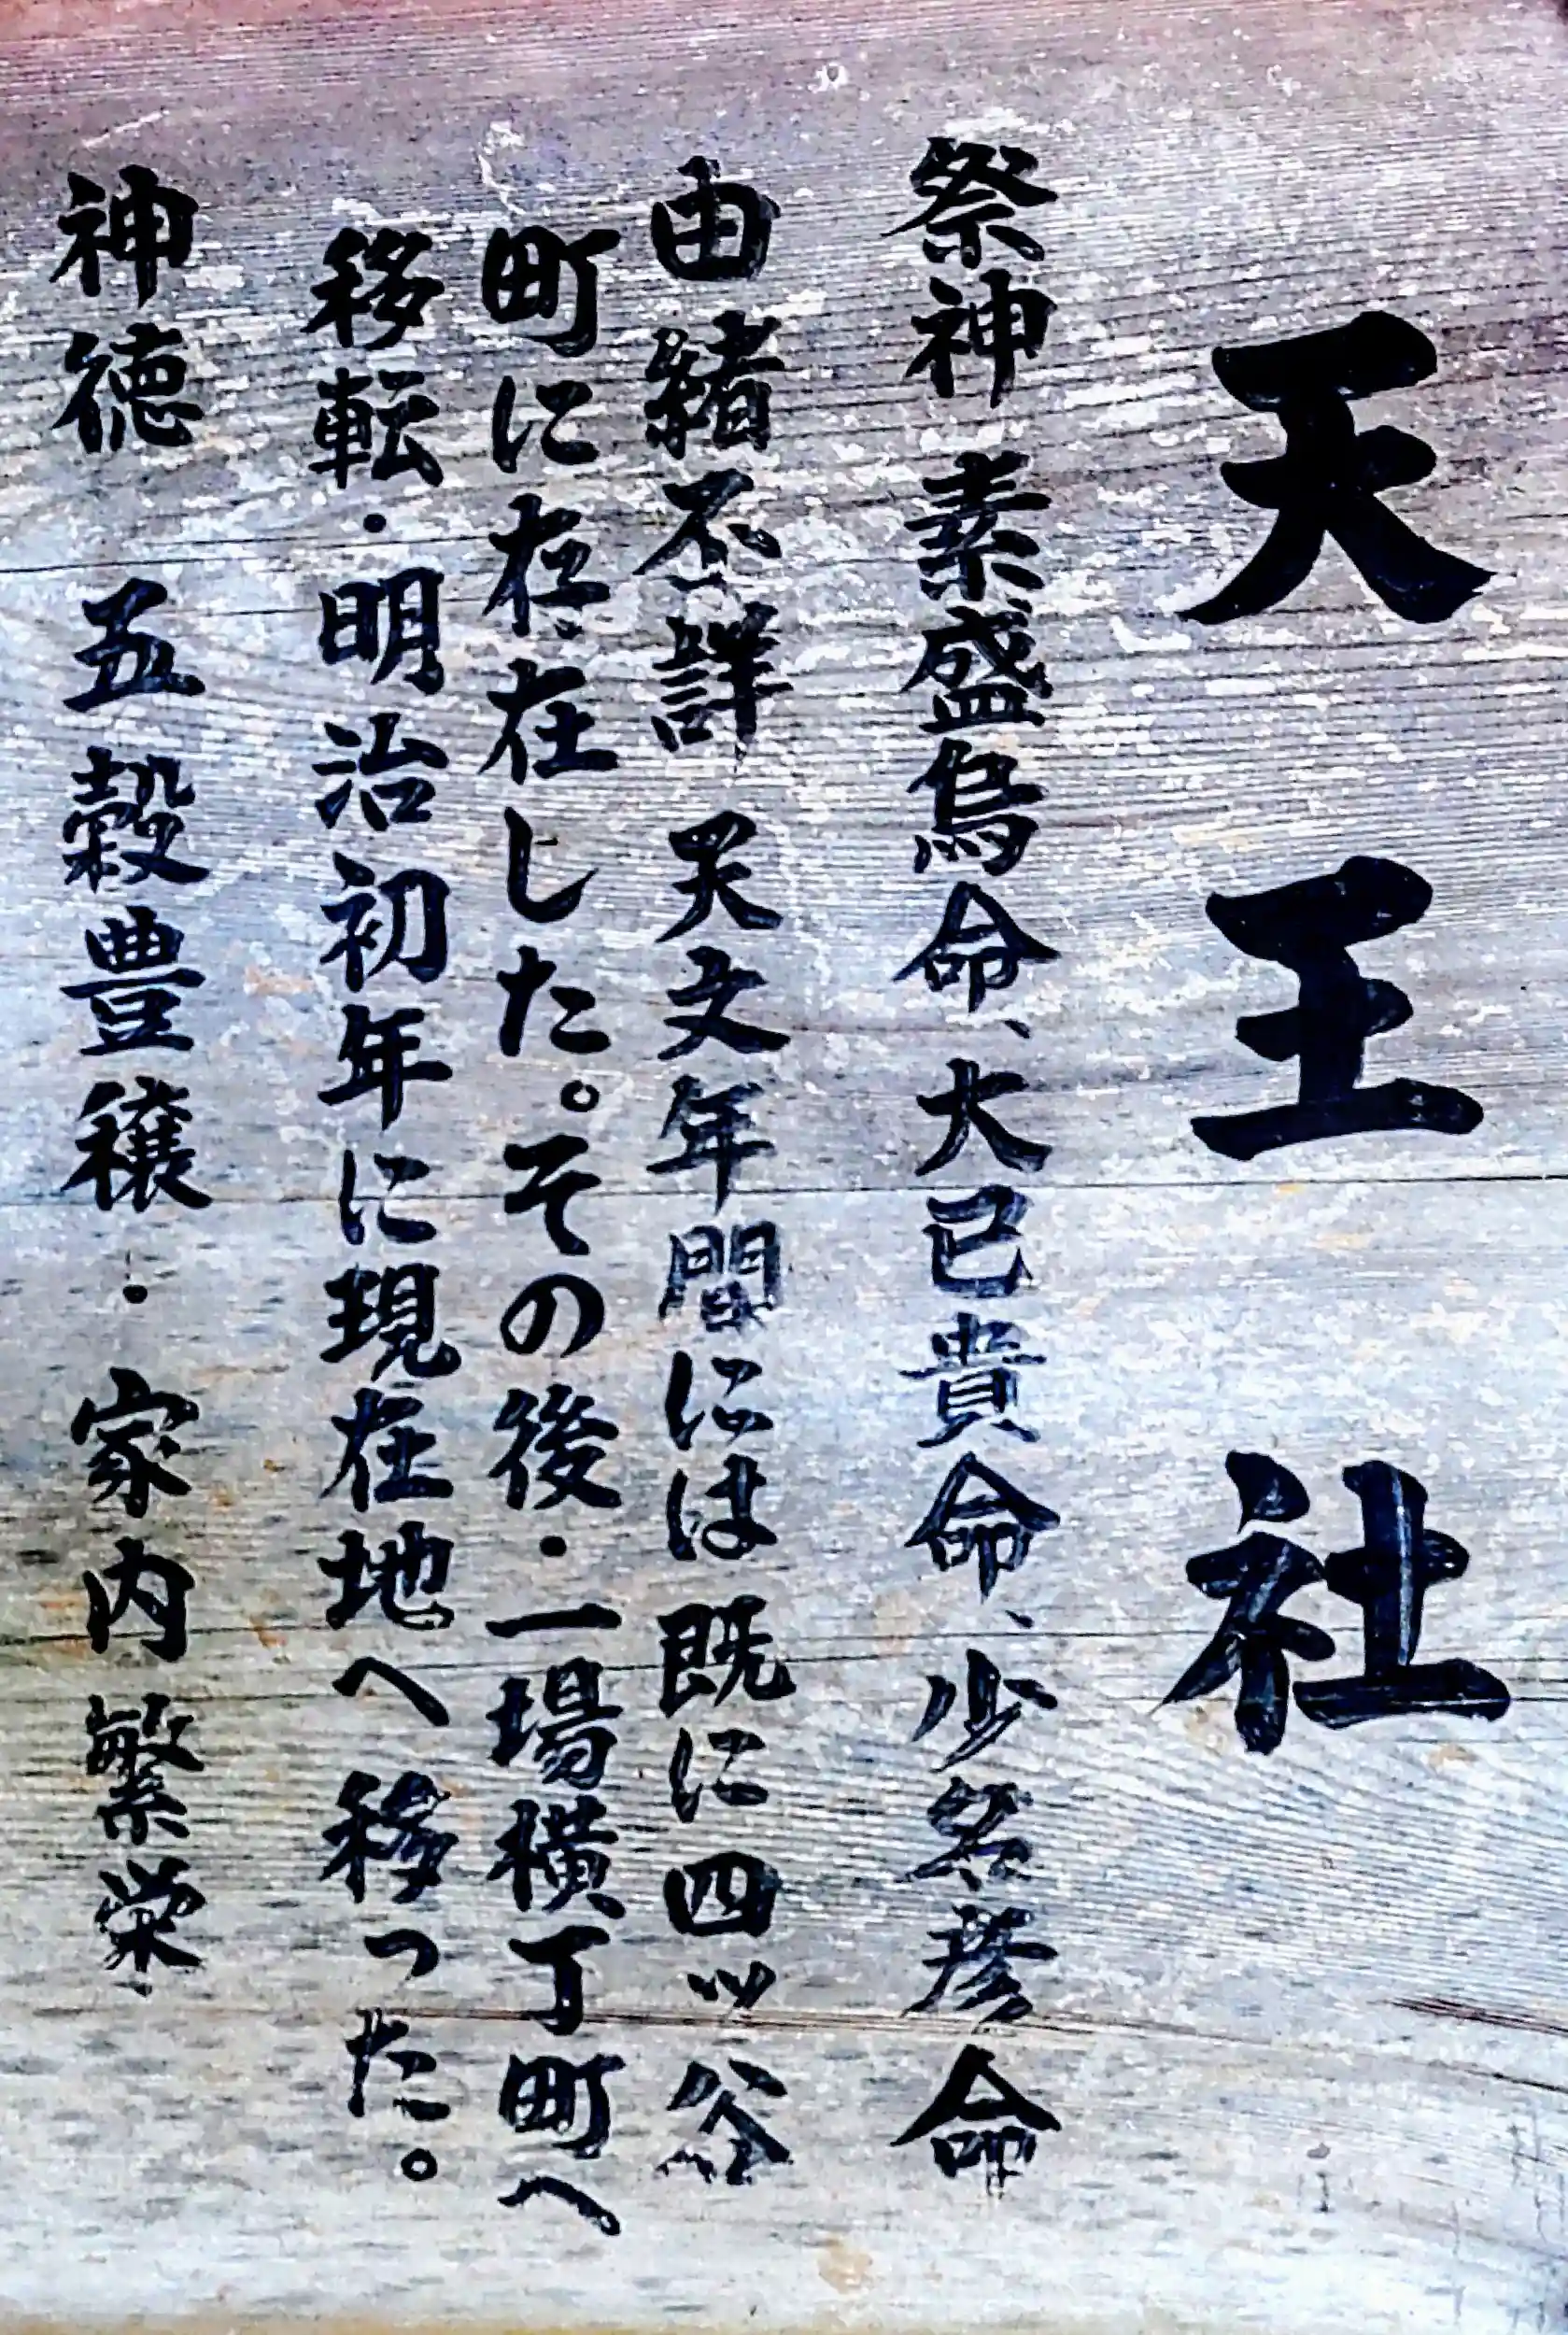 天王社
祭神 素盛鳥命、大己貴命、少名彦命
由緒不詳 天文年間には既に四ッ谷
町に存在した。その後・一場横丁町へ
移転・明治初年に現在地へ移った。
神徳 五穀豊穣・家内繁栄